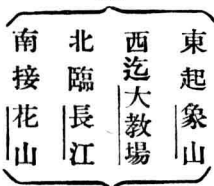 東起象山
西迄大教場
北臨長江
南接花山